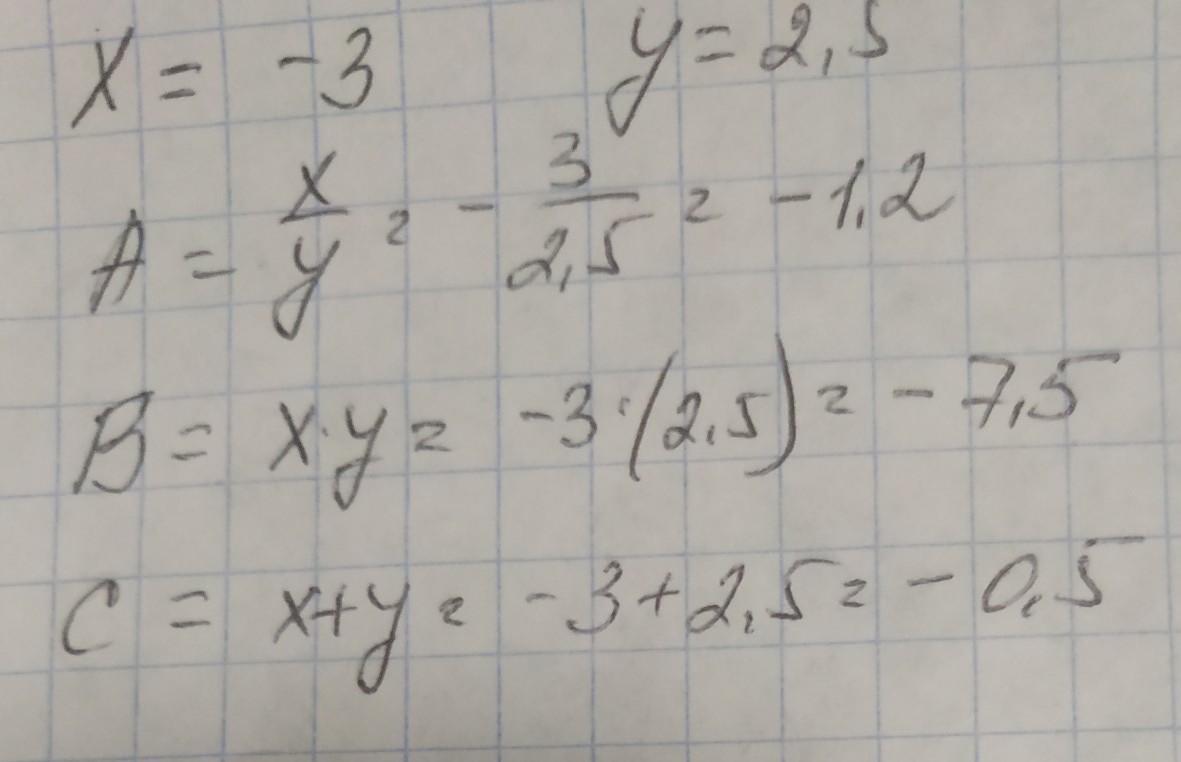 x = -3 y = 2,5
A = x/y = - 3/2,5 = -1,2
B = x·y = -3·(2,5) = -7,5
C = x+y = -3+2,5 = -0,5